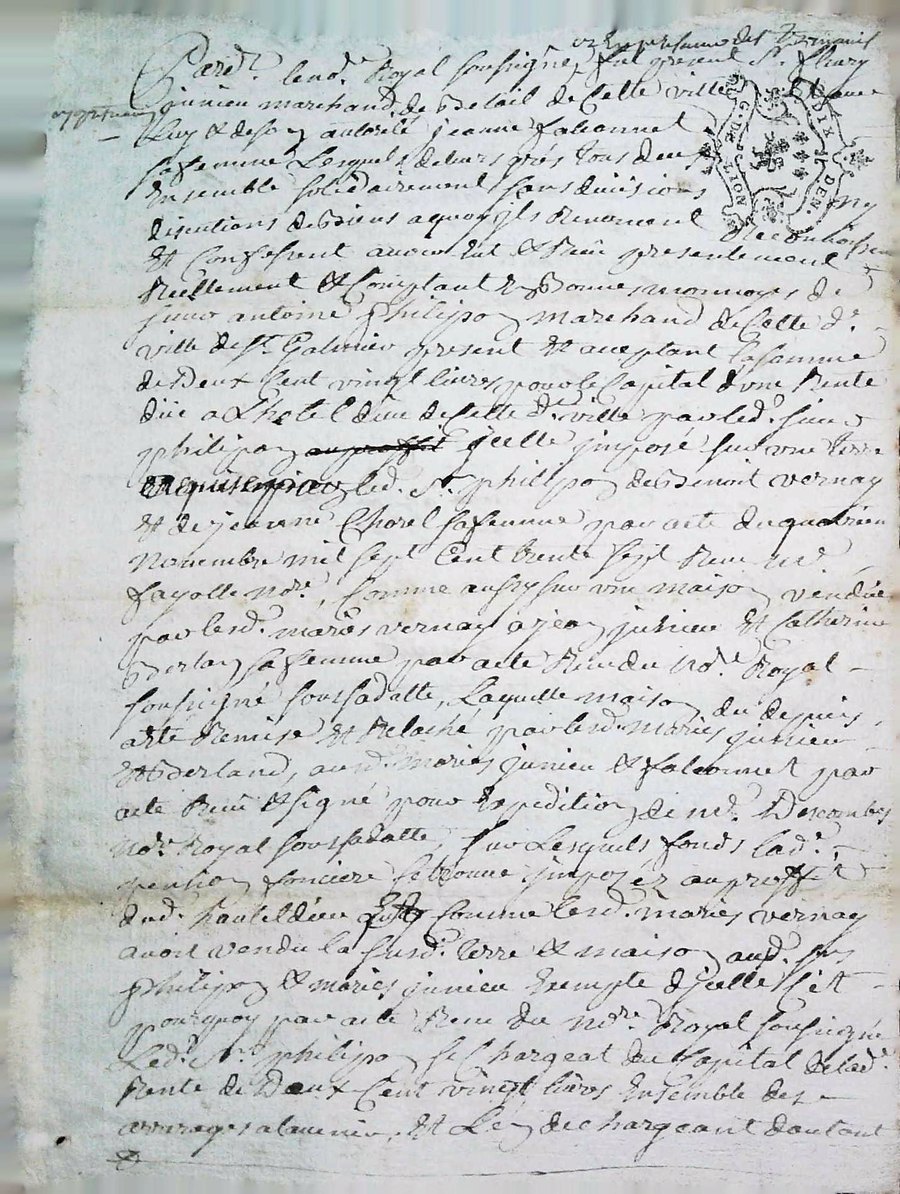 Pard.t le no.re Royal soussigné, et en presence des temoins
fut present S.r fleury
junieu marchand de Detail de Cette ville
Luy & de son autorité jeanne falconnet
sa femme Lesquels tous deux
Ensemble solidairement sans division ny
discutions de Biens a quoy ils Renoncent
& Confessent avoir & Receu presentement
Reellement & Comptant En Bonnes monnoyes de
sieur antoine philipon marchand de Cette d.e
ville de S.t Galmier present & acceptant la somme
de Deux Cent vingt livres pour le Capital d'une Rente
düe a L'hotel dieu de Cette d.e ville par led. sieur
philipon icelle imposé sur une terre
acquise par led. S.r philipon de Benoit vernay
& de jeanne Chorel sa femme par acte du quatrieme
novembre mil sept Cent trente sept Receu M.e
fayolle no.re, Comme aussy sur une maison vendüe
par lesd. mariés vernay a jean junieu & Catherine
Berland sa femme par acte Receu du No.re Royal
soussigné sous sa datte, Laquelle maison du depuis
a eté Remise & Relaché par lesd. mariés junieu
& Berland, aux d. mariés junieu & falconnet par
acte Receu & signé pour Expedition de M.e Descombes
No.re Royal sous sa datte, sur Lesquels fonds lad.e
pension fonciere se trouve imposez au proffit
dud. hautel dieu Comme lesd. mariés vernay
avoit vendu la susd. terre & maison aud. sieur
philipon & mariés junieu Exempte d'icelle C'est
pourquoy par acte Receu du No.re Royal soussigné
Led. S.r philipon se Chargeat du Capital de lad.e
Rente de Deux Cent vingt livres Ensemble des
arrerages a l'avenir, & L'en dechargeant d'autant
G. DE LYON
SIX DEN.